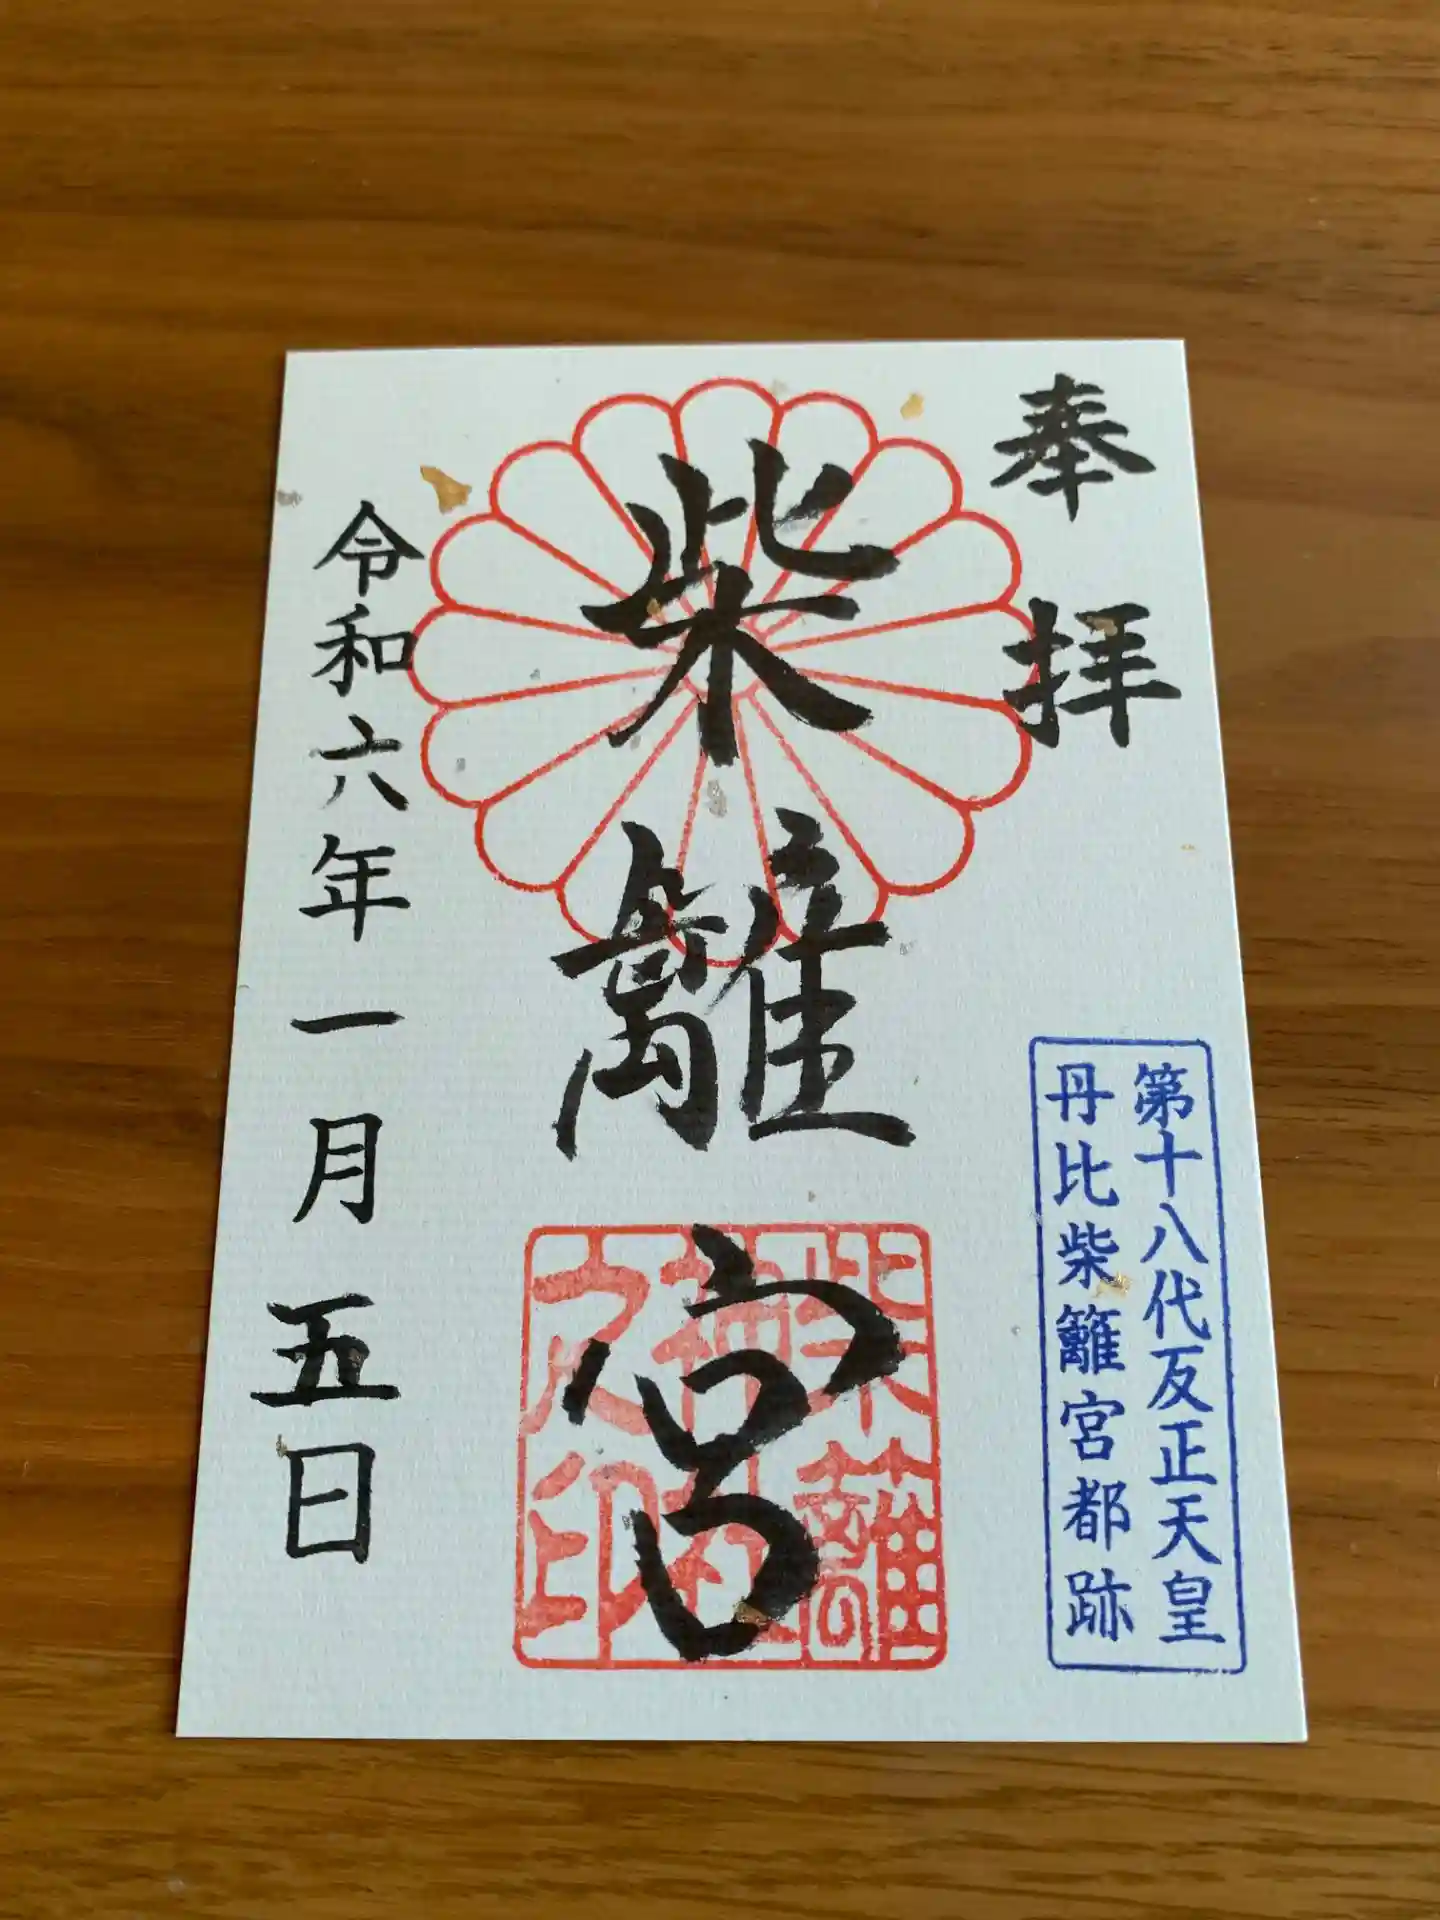 奉拝
第十八代反正天皇
丹比柴籬宮都跡
柴籬宮
柴籬
神社
之印
令和六年一月五日